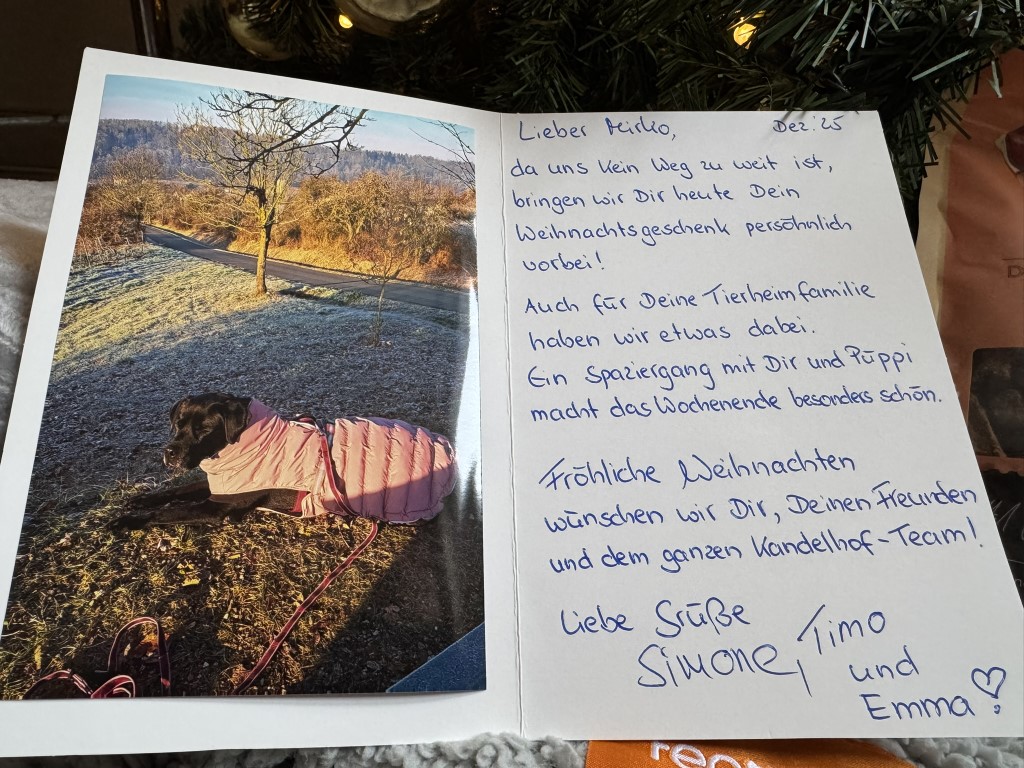 Lieber Mirko, Dez. 25
da uns kein Weg zu weit ist,
bringen wir Dir heute Dein
Weihnachtsgeschenk persöhnlich
vorbei!
Auch für Deine Tierheimfamilie
haben wir etwas dabei.
Ein Spaziergang mit Dir und Püppi
macht das Wochenende besonders schön.
Fröhliche Weihnachten
wünschen wir Dir, Deinen Freunden
und dem ganzen Kandelhof-Team!
Liebe Grüße
Simone, Timo
und
Emma